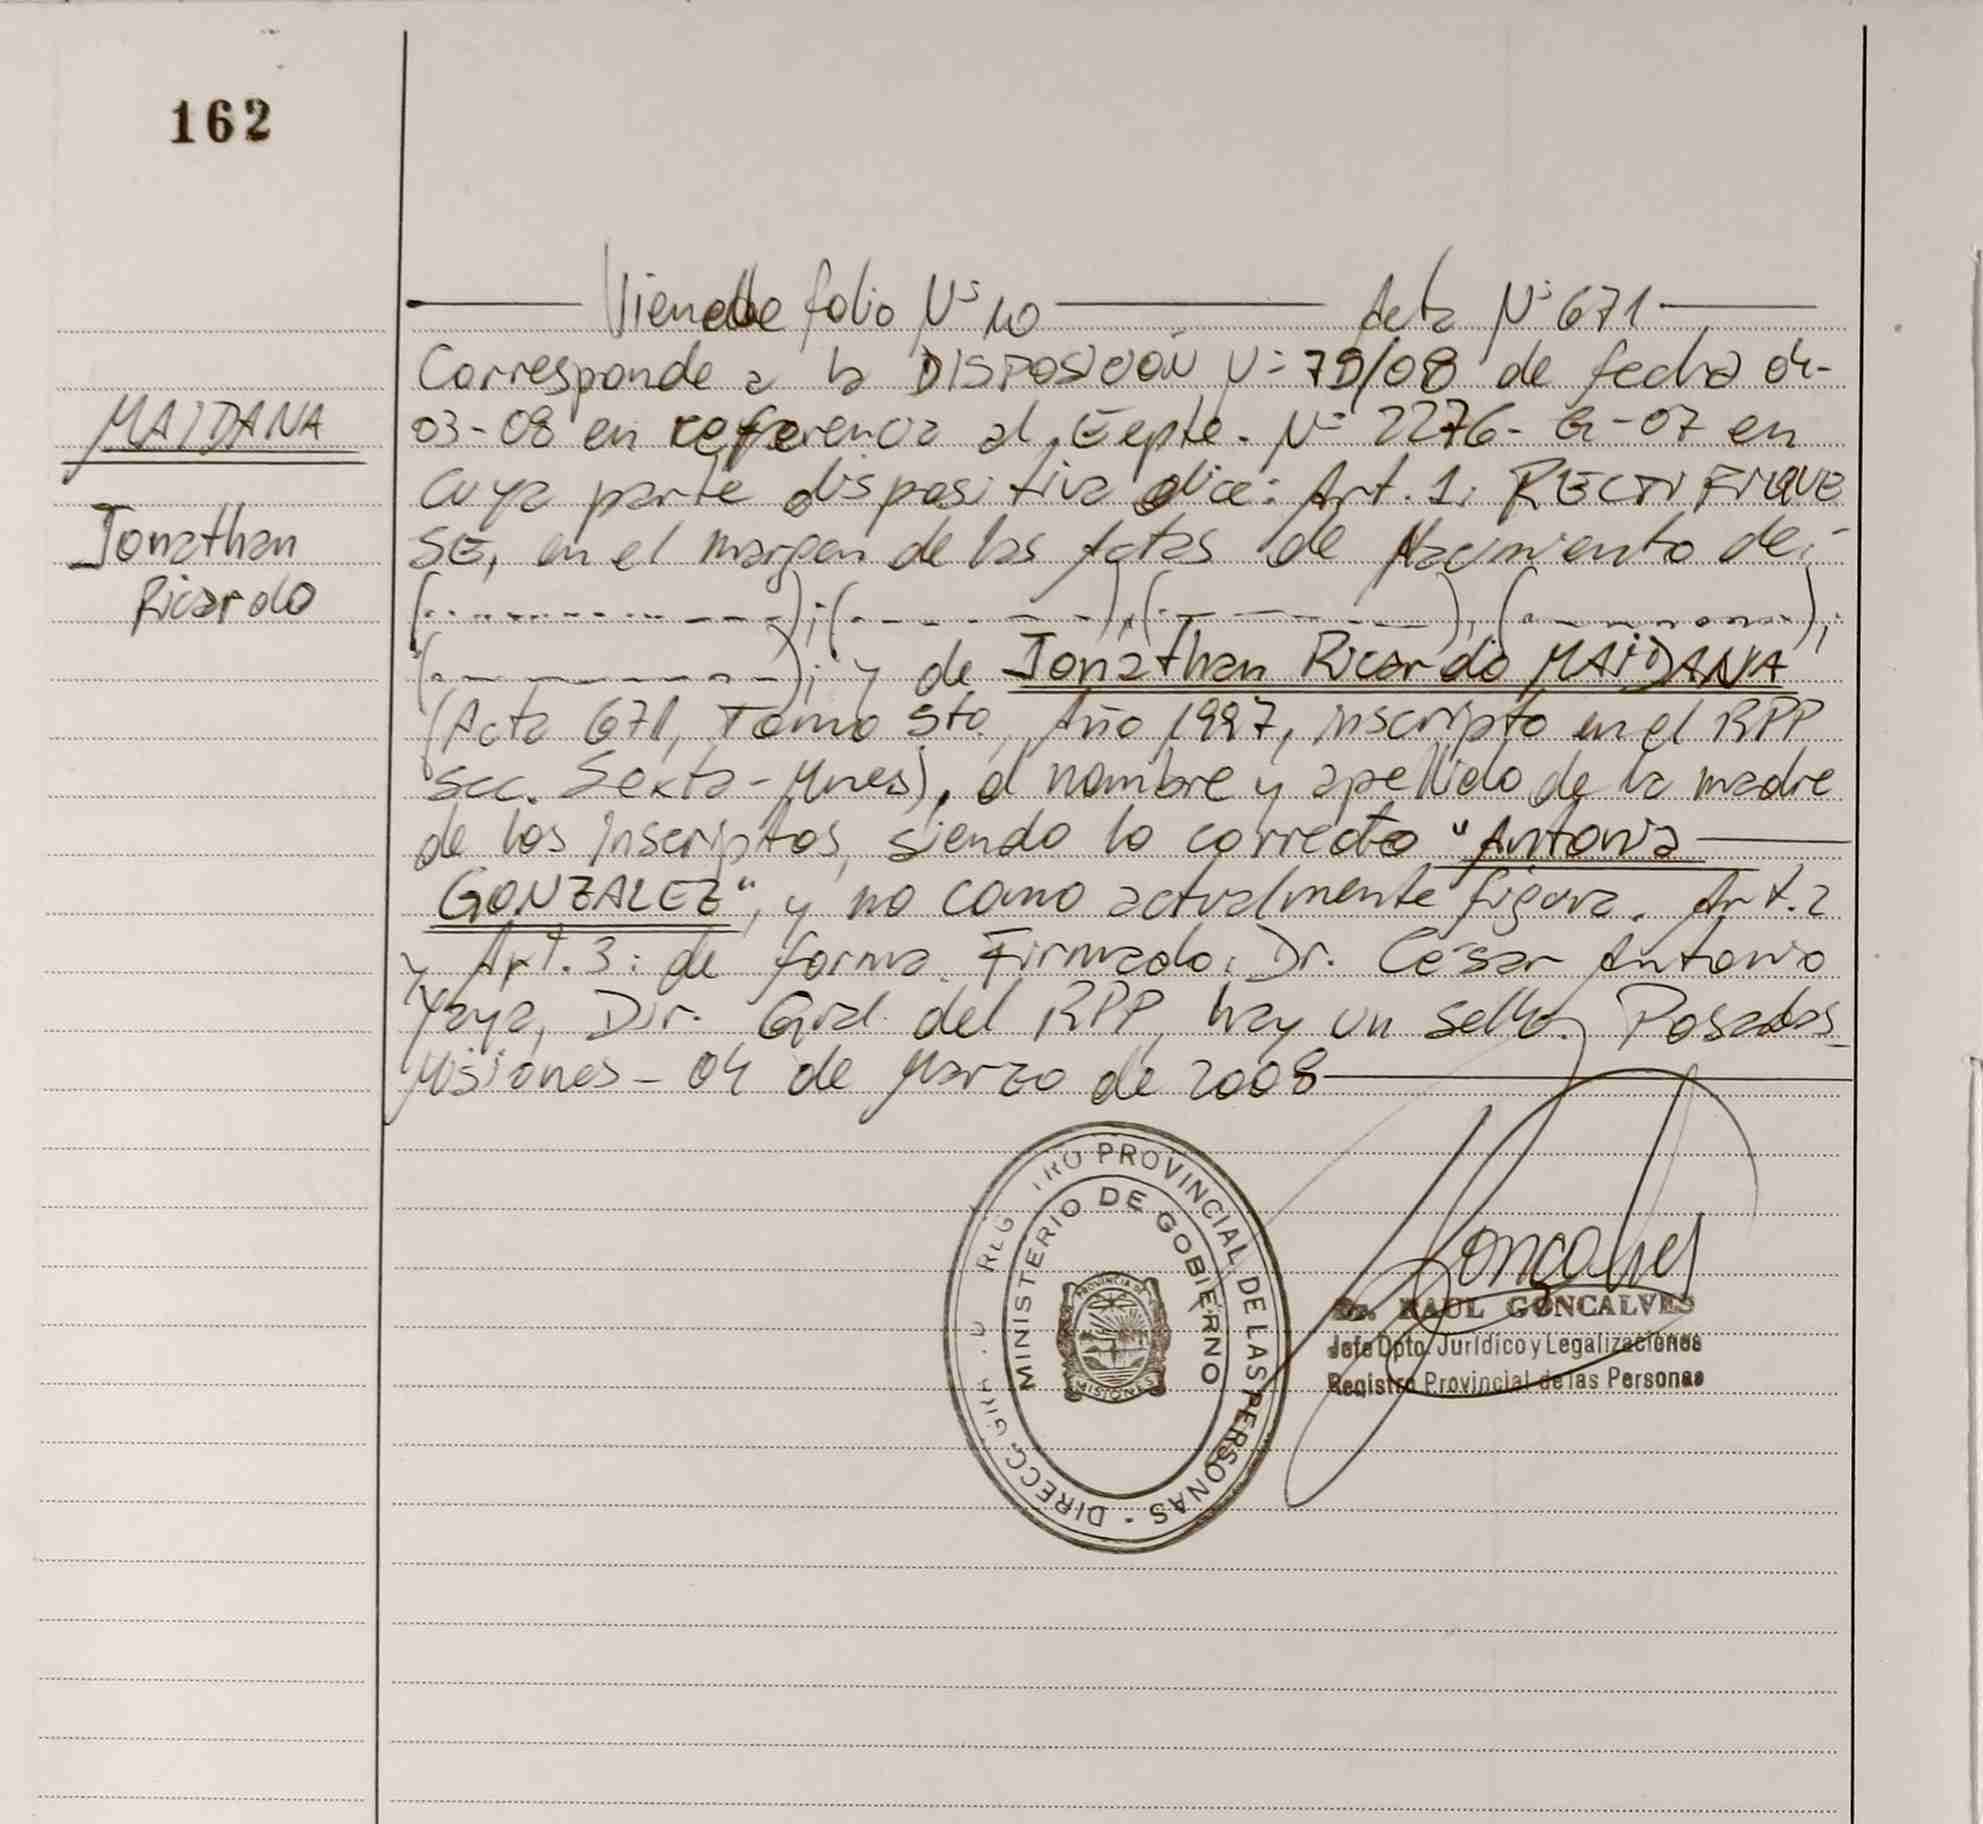 162
Viene de folio Nº 10 Acta Nº 671
Corresponde a la DISPOSICIÓN Nº 79/08 de fecha 04-
03-08 en referencia al Expte. Nº 2276-G-07 en
cuya parte dispositiva dice: Art. 1: RECTIFIQUE
SE, en el margen de las Actas de Nacimiento de:
(-----------);(---------),(---------),(---------),
(-----------); y de Jonathan Ricardo MAIDANA
(Acta 671, Tomo 5to, Año 1997, inscripto en el RPP
Scc. Sexta-Mnes), el nombre y apellido de la madre
de los inscriptos, siendo lo correcto "Antonia
GONZALEZ", y no como actualmente figura. Art. 2
y Art. 3: de forma. Firmado: Dr. César Antonio
Yaya, Dir. Gral. del RPP, hay un sello. Posadas
Misiones - 04 de Marzo de 2008
MAIDANA
Jonathan
Ricardo
PROVINCIAL DE LAS PERSONAS - DIRECC
MINISTERIO DE GOBIERNO
PROVINCIA DE
MISIONES
Goncalves
Dr. RAUL GONCALVES
Jefe Dpto. Jurídico y Legalizaciones
Registro Provincial de las Personas